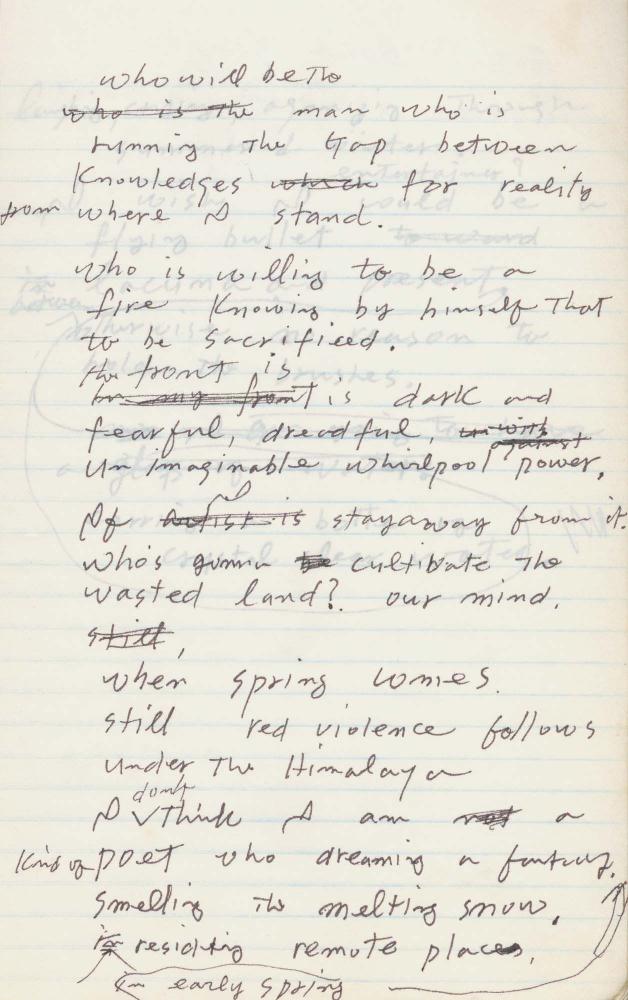 who will be the
who is the man who is
running the Gap between
Knowledges which for reality
from where I stand.
who is willing to be a
fire Knowing by himself that
to be sacrified.
the front is
my front is dark and
fearful, dreadful, with
against
unimaginable whirlpool power,
If artist is stay away from it.
who's gonna to cultivate the
wasted land? our mind.
still,
when spring comes.
still red violence follows
under the Himalaya
don't
I think I am not a
kind of poet who dreaming a fantasy.
smelling the melting snow.
residing remote places.
in early spring